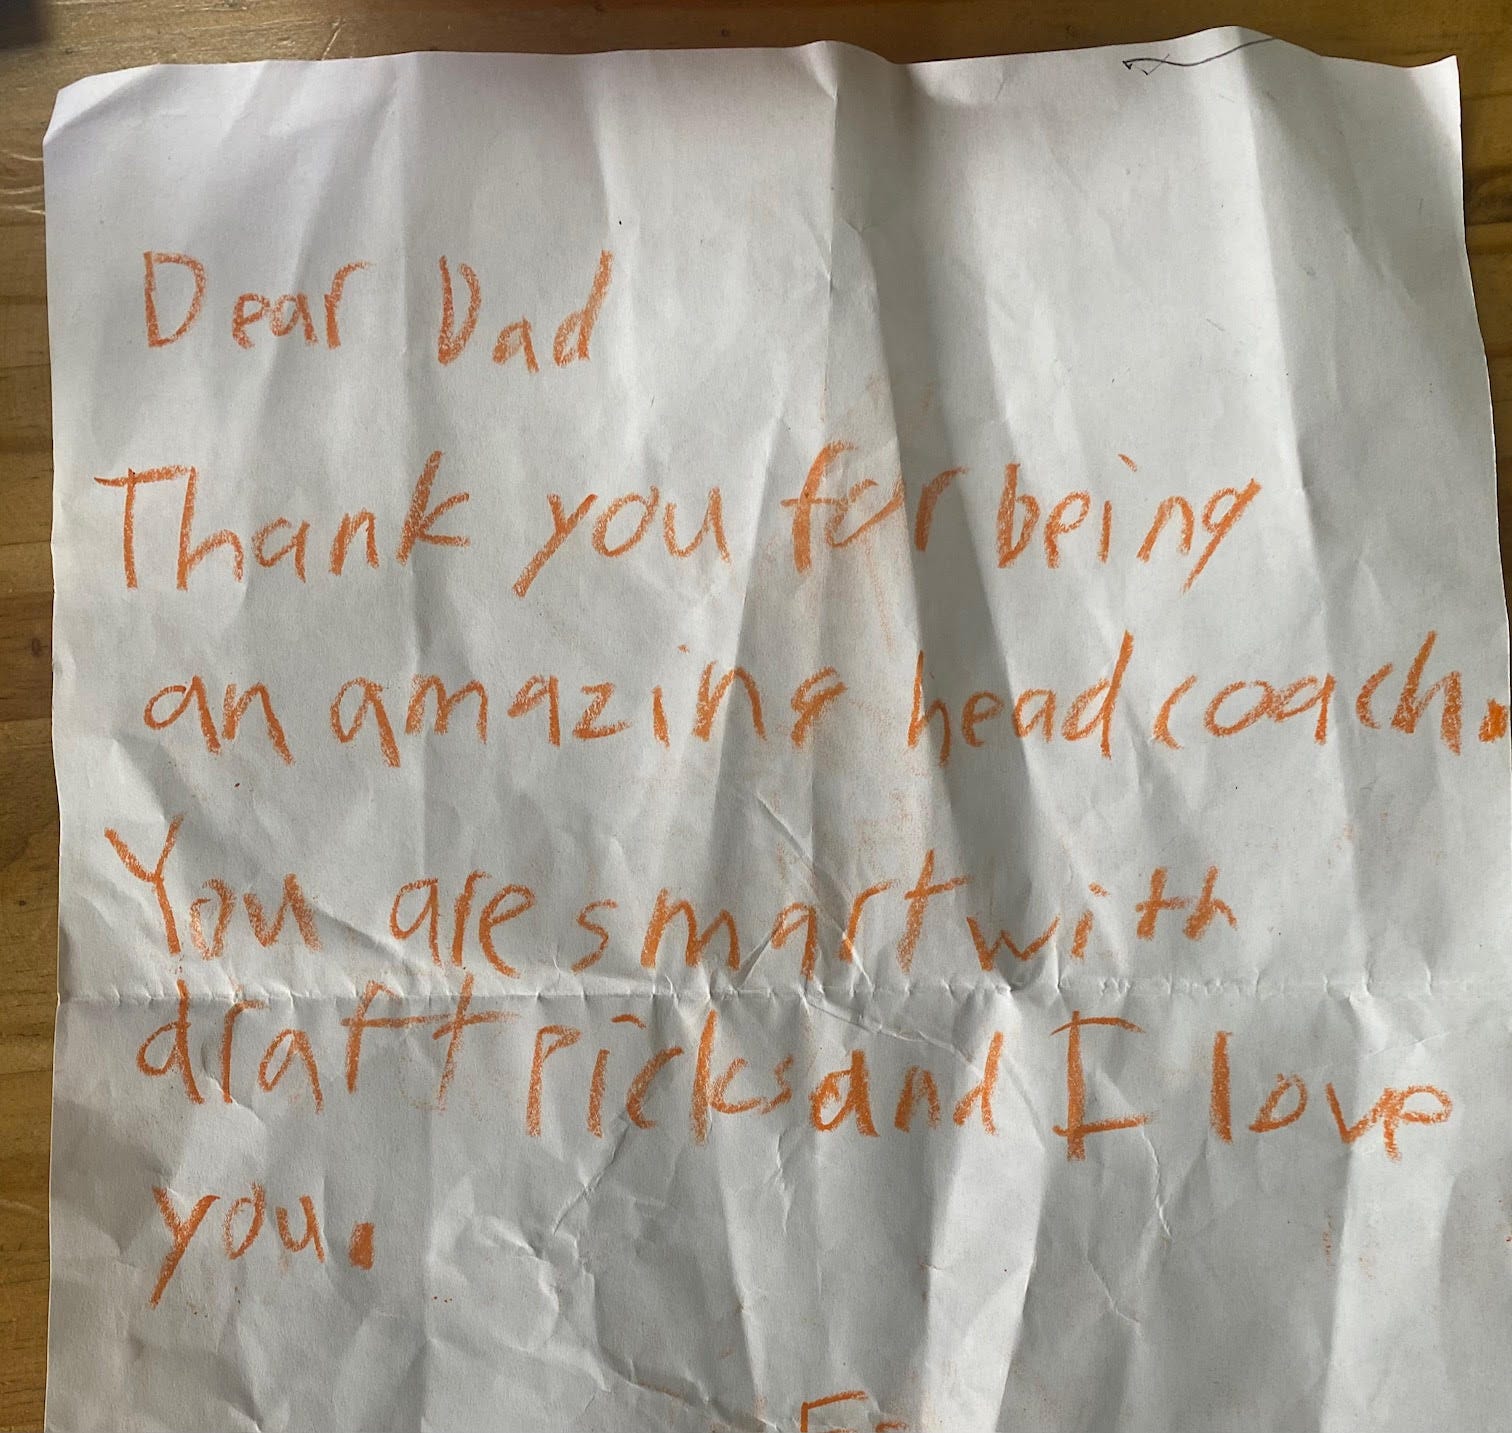 Dear Dad
Thank you for being
an amazing head coach.
You are smart with
draft picks and I love
you.